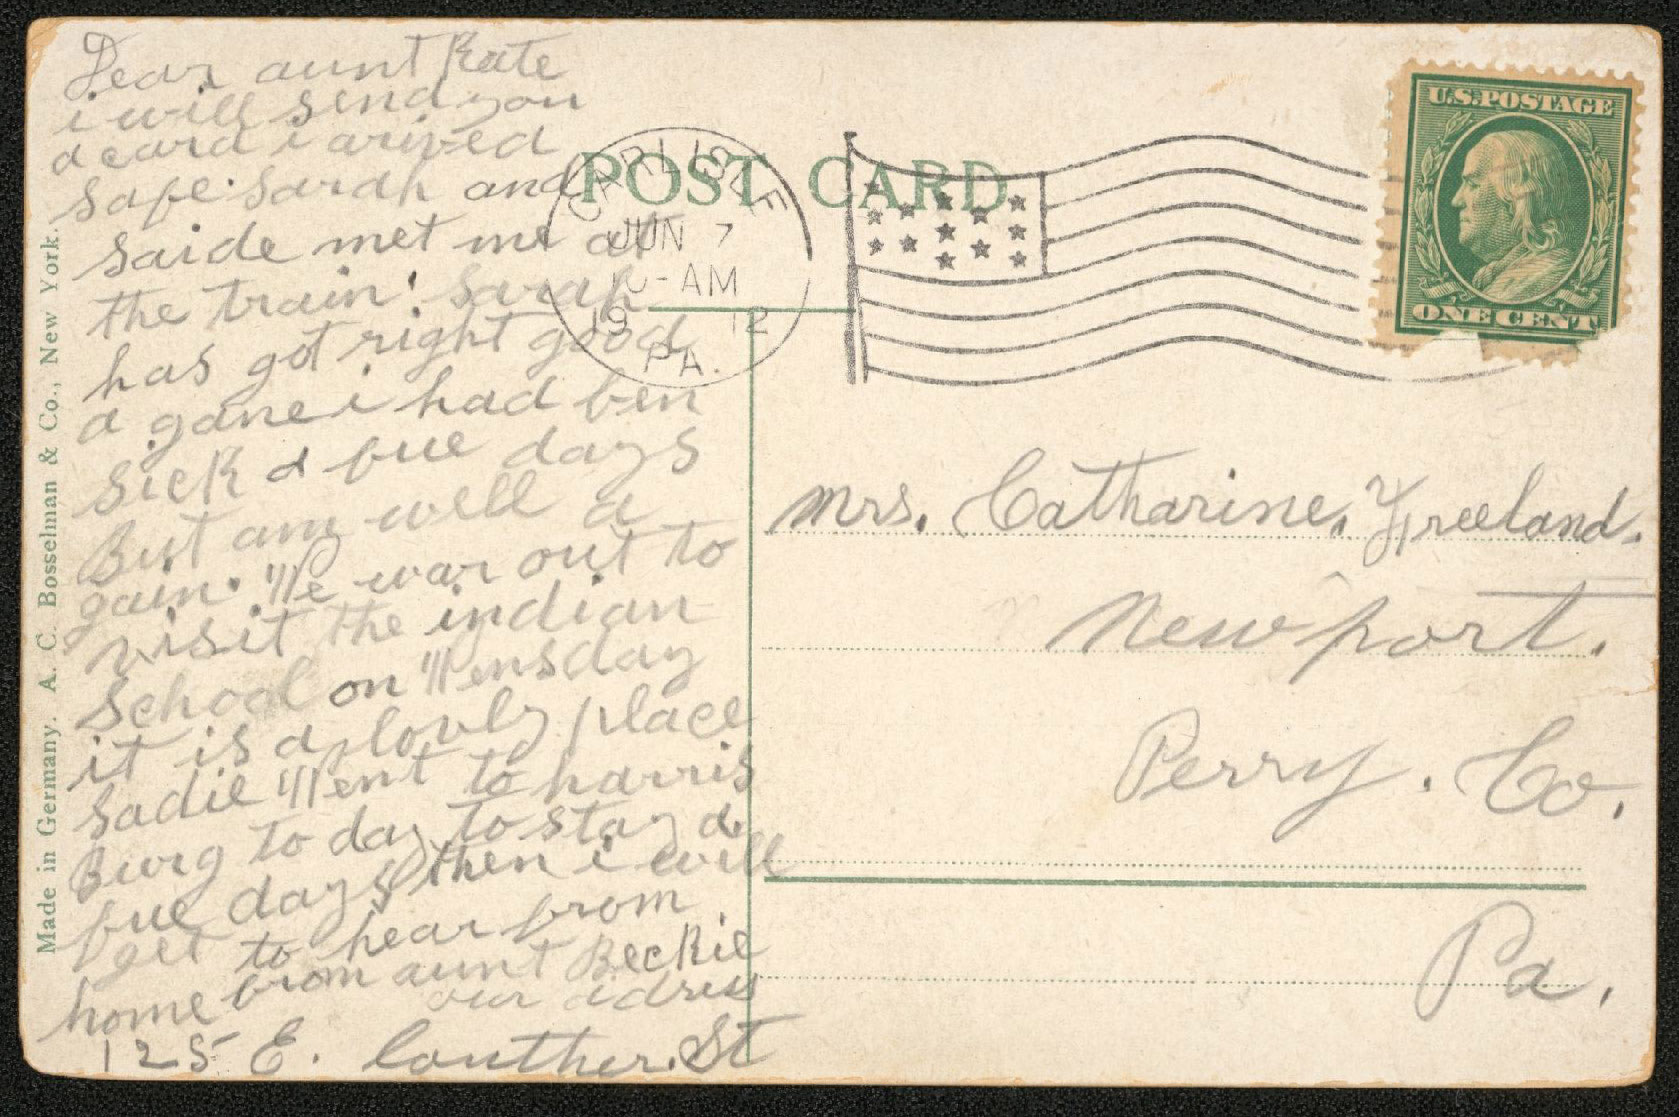 Dear aunt Kate
i will send you
a card i arived
safe. Sarah and
Saide met me at
the train. Sarah
has got right good
a gane i had ben
sick a fue days
But am well a
gain. We war out to
visit the indian
School on Wensday
it is a lovly place
Sadie Went to harris
Burg to day to stay a
fue days then i will
get to hear from
home from aunt Beckie
our adress
125 E. Louther. St
Made in Germany. A. C. Bosselman & Co., New York.
POST CARD
CARLISLE
JUN 7
-AM
19 12
PA.
U.S. POSTAGE
ONE CENT
Mrs. Catharine. Freeland.
Newport.
Perry. Co.
Pa.